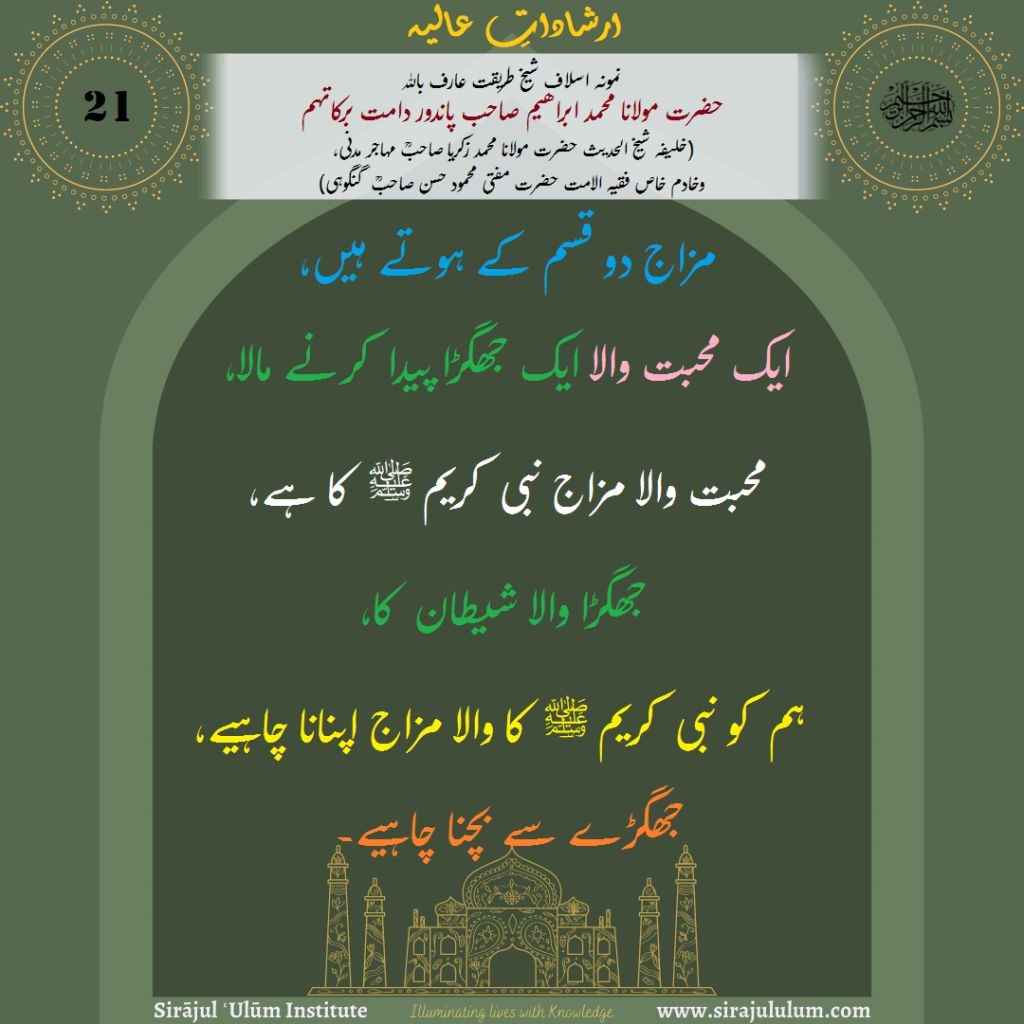 ارشاداتِ عالیہ
21
نمونہ اسلاف شیخ طریقت عارف باللہ
حضرت مولانا محمد ابراھیم صاحب پاندور دامت برکاتہم
(خلیفہ شیخ الحدیث حضرت مولانا محمد زکریا صاحبؒ مہاجر مدنی،
وخادم خاص فقیہ الامت حضرت مفتی محمود حسن صاحبؒ گنگوہی)
مزاج دو قسم کے ہوتے ہیں،
ایک محبت والا ایک جھگڑا پیدا کرنے مالا،
محبت والا مزاج نبی کریم ﷺ کا ہے،
جھگڑا والا شیطان کا،
ہم کو نبی کریم ﷺ کا والا مزاج اپنانا چاہیے،
جھگڑے سے بچنا چاہیے۔
Sirājul ʿUlūm Institute
Illuminating lives with Knowledge
www.sirajululum.com